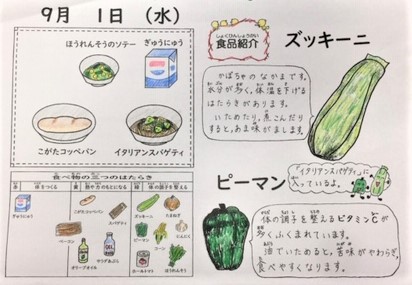 9月 1日 (水)
ほうれんそうのソテー
ぎゅうにゅう
こがたコッペパン
イタリアンスパゲティ
食べ物の三つのはたらき
赤 体をつくる
黄 熱や力のもとになる
緑 体の調子を整える
ぎゅうにゅう
ベーコン
こがたコッペパン
スパゲティ
オリーブオイル
サラダあぶら
ズッキーニ
たまねぎ
ピーマン
コーン
にんにく
ホールトマト
ほうれんそう
しょくひんしょうかい
食品紹介
ズッキーニ
かぼちゃのなかまです。
水分が多く、体温を下げる
はたらきがあります。
いためたり、煮こんだり
すると、あま味がまします。
ピーマン
「イタリアンスパゲティ」に
入っているよ。
体の調子を整えるビタミンCが
多くふくまれています。
油でいためると、苦味がやわらぎ、
食べやすくなります。